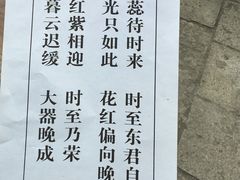 蕊待时来 时至东君自
光只如此 花红偏向晚
红紫相迎 时至乃荣
暮云迟缓 大器晚成